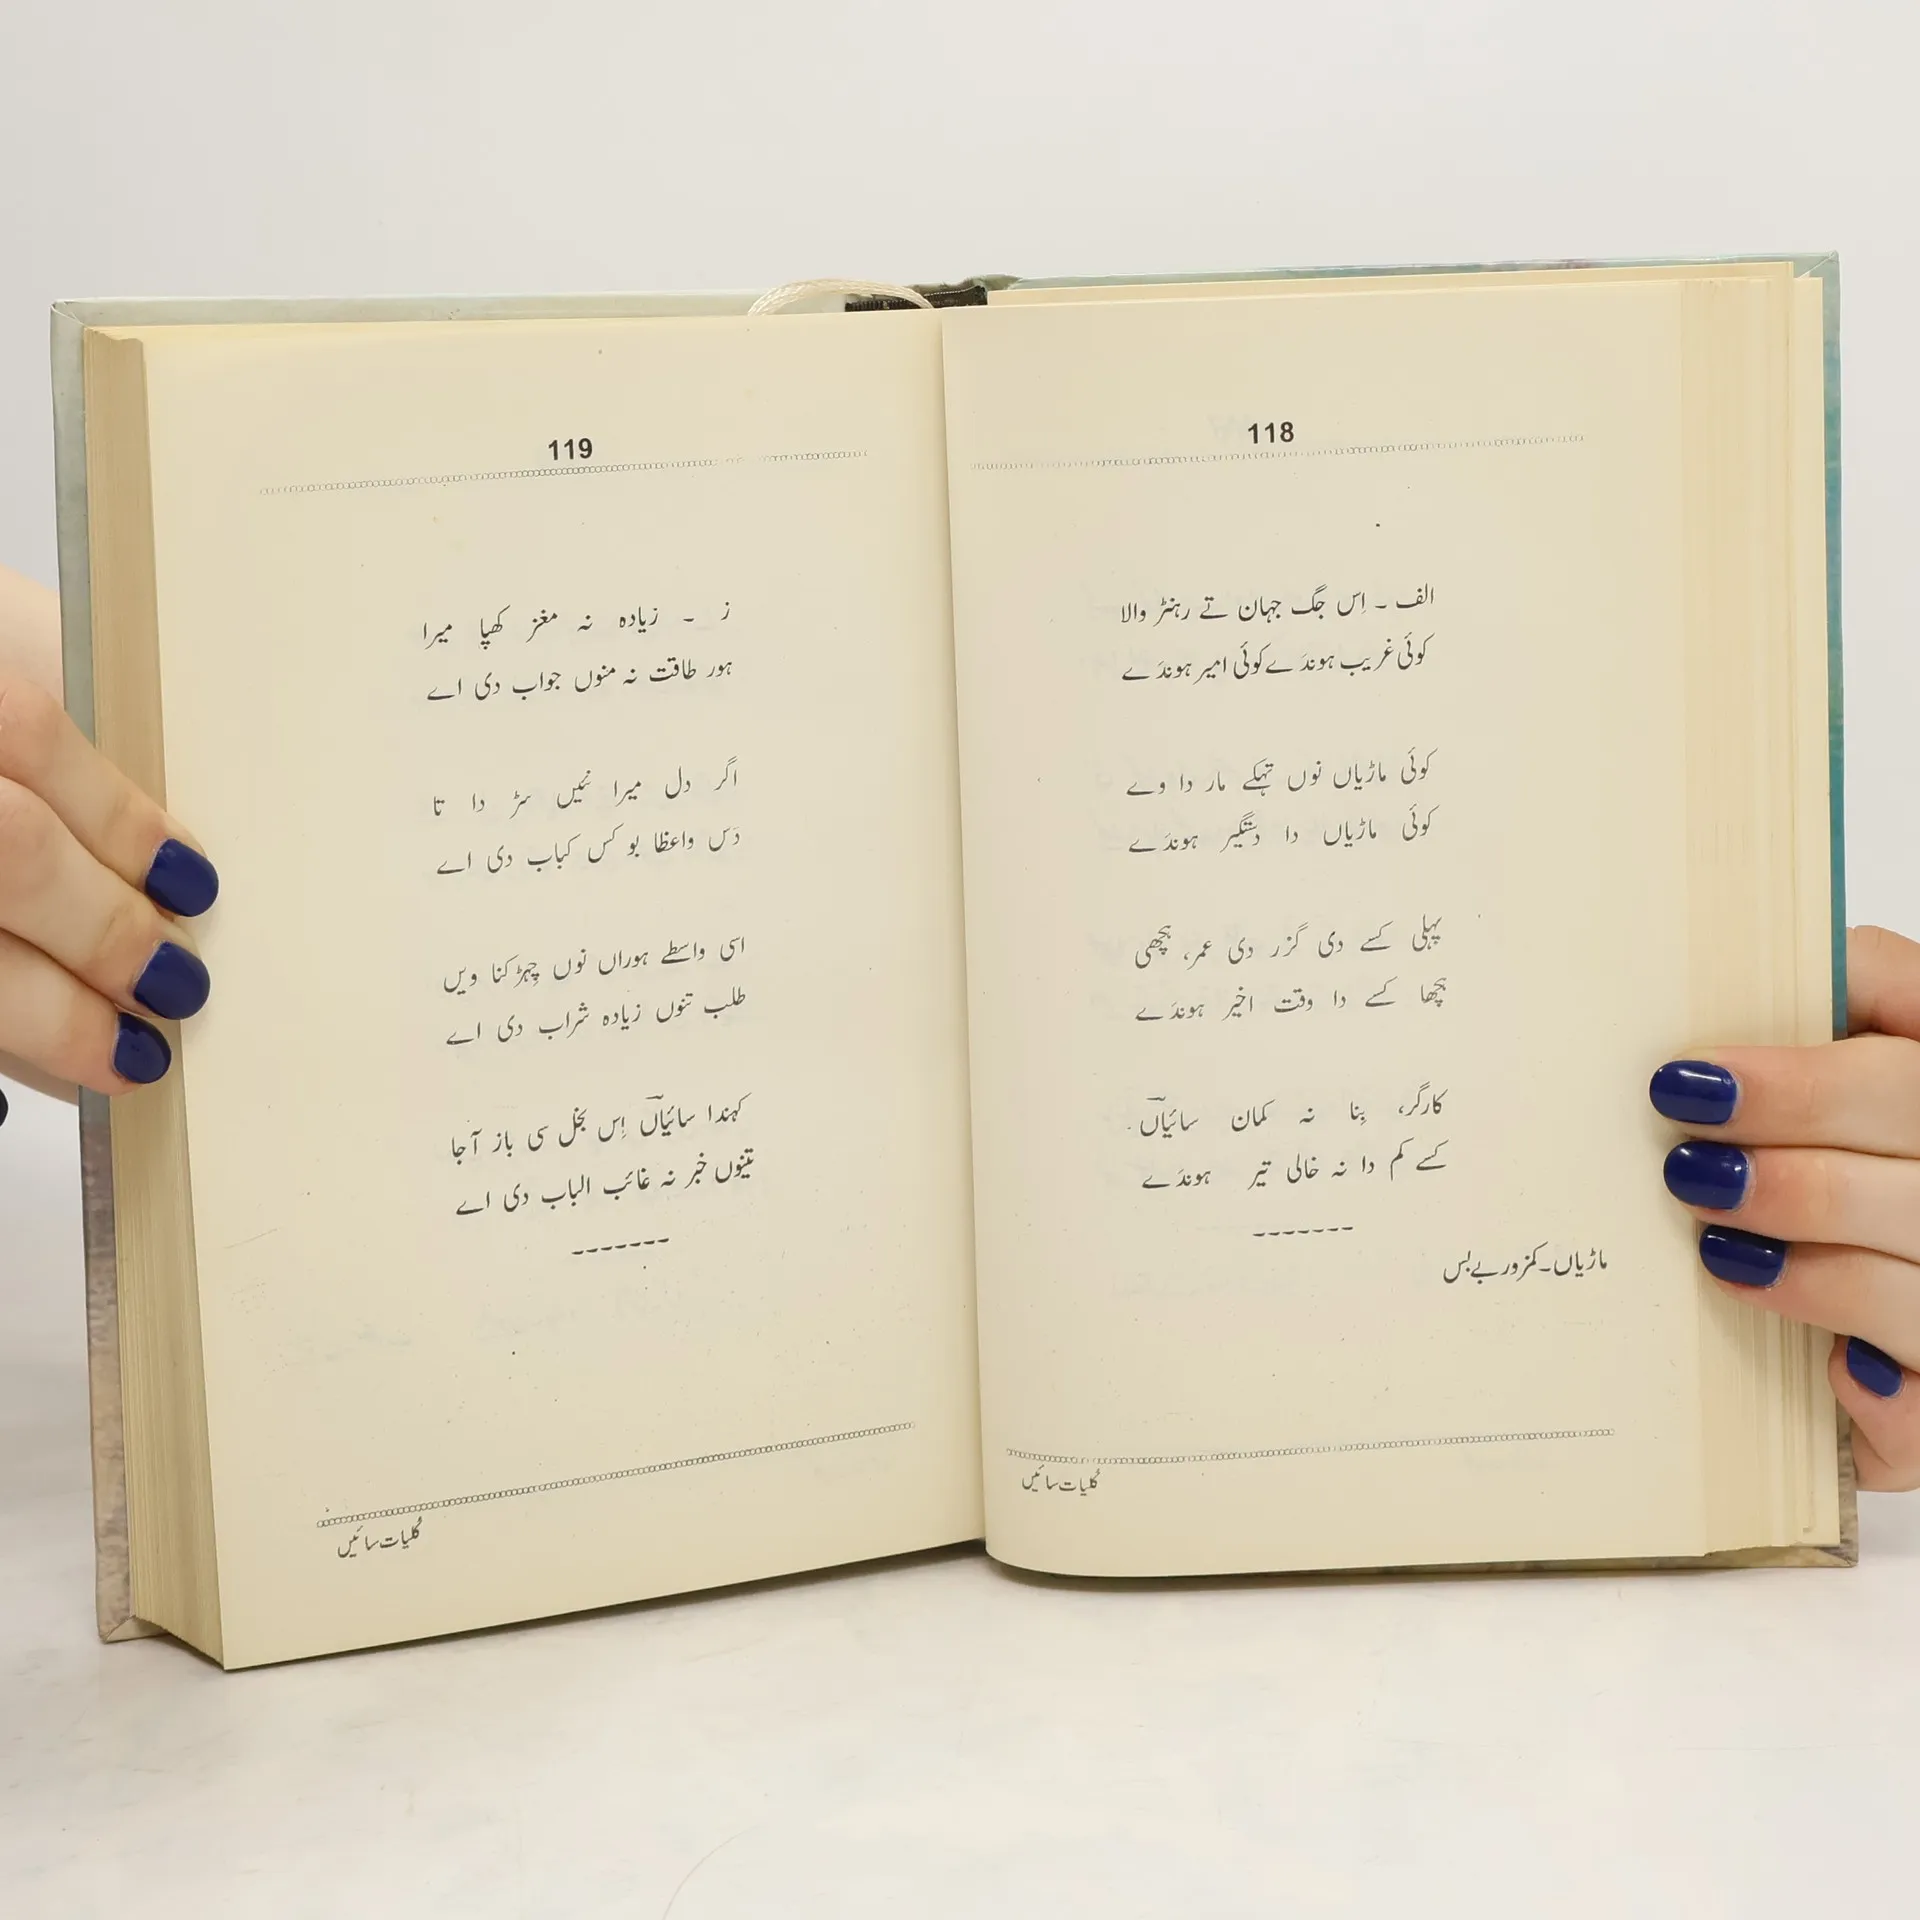 118
الف ۔ اِس جگ جہان تے رہنڑ والا
کوئی غریب ہوندَے کوئی امیر ہوندَے
کوئی ماڑیاں نوں تہکے مار دا وے
کوئی ماڑیاں دا دستگیر ہوندَے
پہلی کسے دی گزر دی عمر، پچھی
پچھا کسے دا وقت اخیر ہوندَے
کارگر، بِنا نہ کمان سائیاںؔ
کسے کم دا نہ خالی تیر ہوندَے
-------
ماڑیاں۔کمزور بے بس
کلیات سائیں
119
ز ۔ زیادہ نہ مغز کھپا میرا
ہور طاقت نہ منوں جواب دی اے
اگر دل میرا نئیں سڑ دا تا
دَس واعظا بو کس کباب دی اے
اسی واسطے ہوراں نوں چِہڑکنا ویں
طلب تنوں زیادہ شراب دی اے
کہندا سائیاںؔ اِس بخل سی باز آ جا
تینوں خبر نہ غائب الباب دی اے
-------
کلیات سائیں